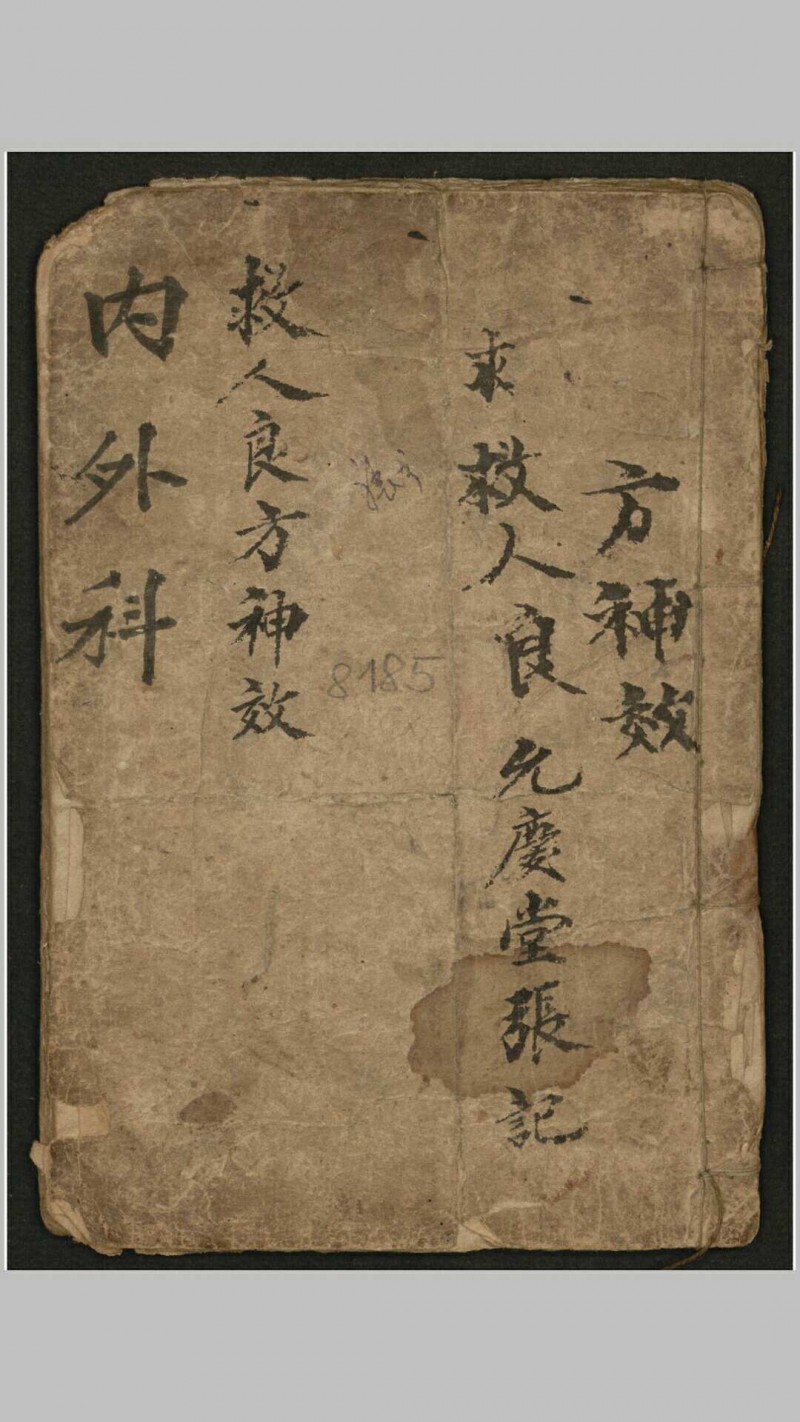 方神效
求救人良允慶堂張記
救人良方神效
内外科
8185